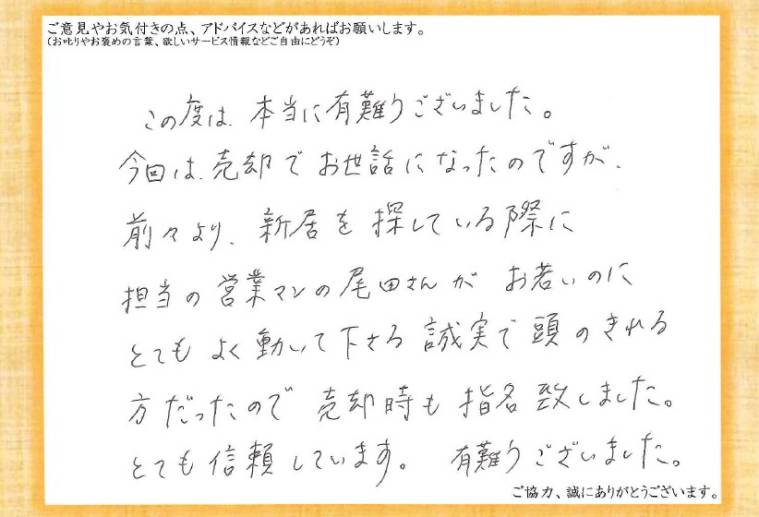 ご意見やお気付きの点、アドバイスなどがあればお願いします。
（お叱りやお褒めの言葉、欲しいサービス情報などご自由にどうぞ）
この度は、本当に有難うございました。
今回は、売却でお世話になったのですが、
前々より、新居を探している際に
担当の営業マンの尾田さんが お若いのに
とても よく動いて下さる 誠実で頭のきれる
方だったので 売却時も 指名致しました。
とても信頼しています。 有難うございました。
ご協力、誠にありがとうございます。